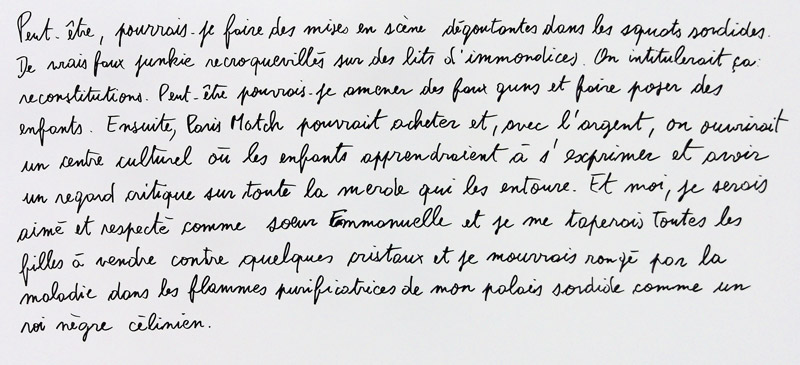 Peut-être, pourrais-je faire des mises en scène dégoutantes dans les squats sordides.
De vrais faux junkie recroquevillés sur des lits d'immondices. On intitulerait ça:
reconstitutions. Peut-être pourrais-je amener des faux guns et faire poser des
enfants. Ensuite, Paris Match pourrait acheter et, avec l'argent, on ouvrirait
un centre culturel où les enfants apprendraient à s'exprimer et avoir
un regard critique sur toute la merde qui les entoure. Et moi, je serais
aimé et respecté comme soeur Emmanuelle et je me taperais toutes les
filles à vendre contre quelques cristaux et je mourrais rongé par la
maladie dans les flammes purificatrices de mon palais sordide comme un
roi nègre célinien.